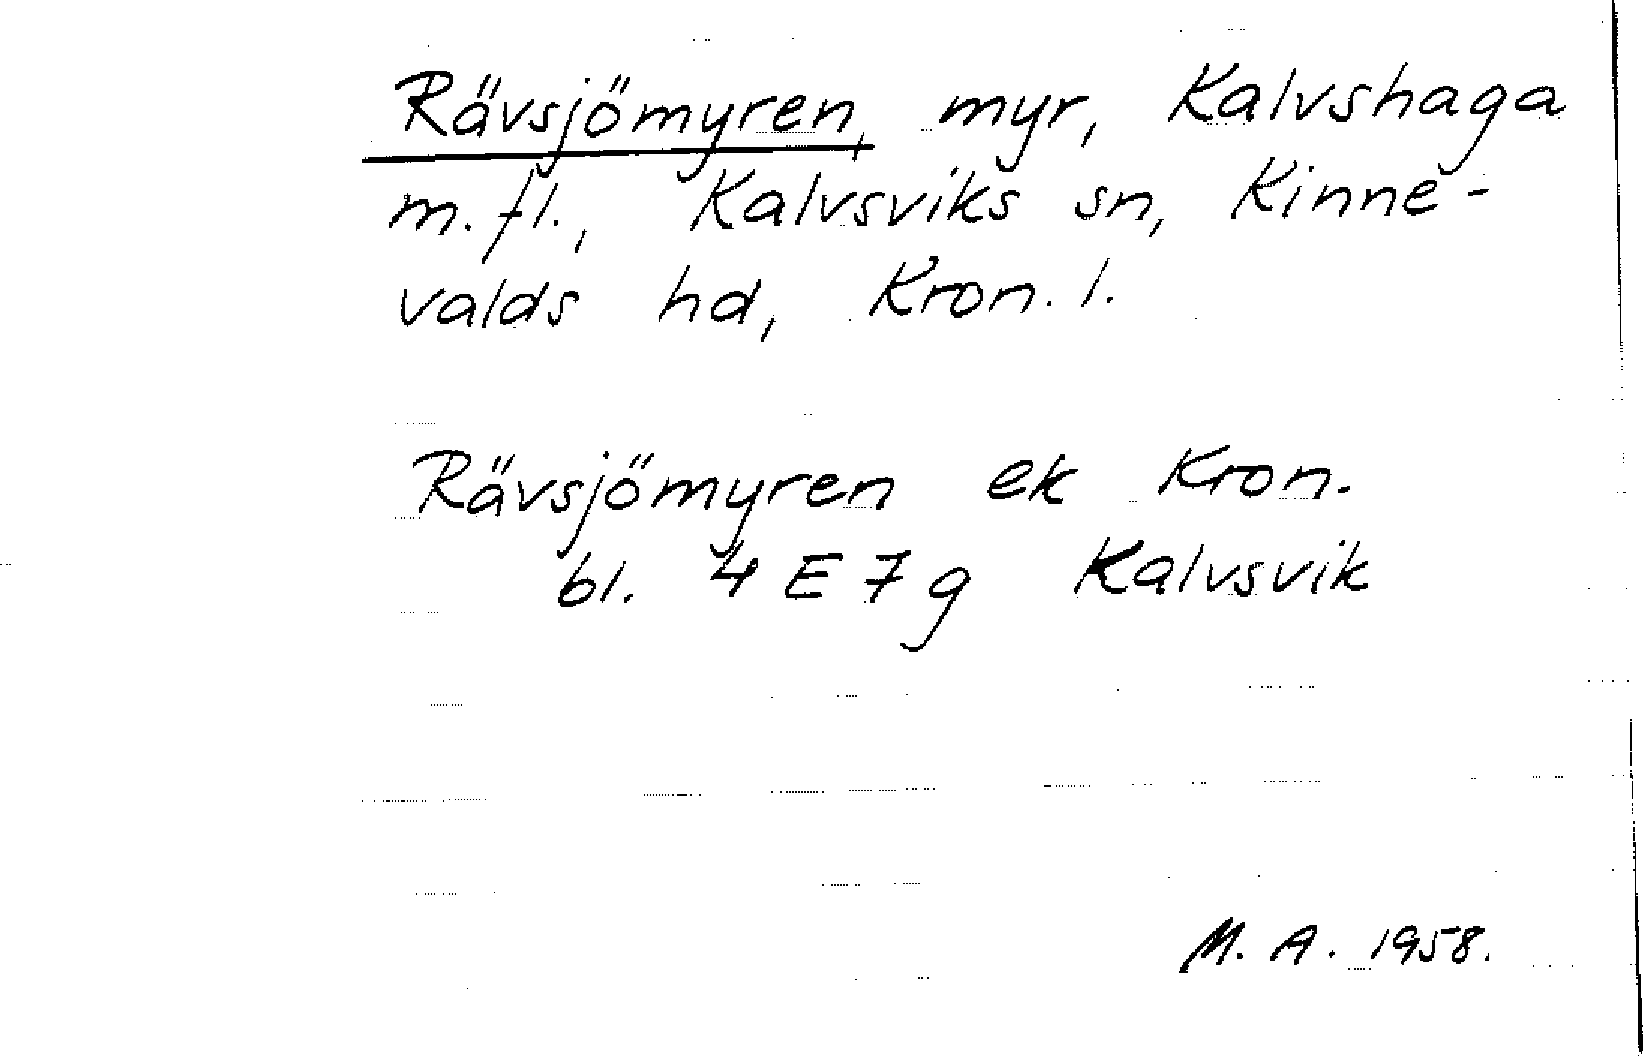 Rävsjömyren, myr, Kalvshaga
m.fl., Kalvsviks sn, Kinne-
valds hd, Kron. l.
Rävsjömyren ek Kron.
bl. 4 E 7 g Kalvsvik
M. A. 1958.